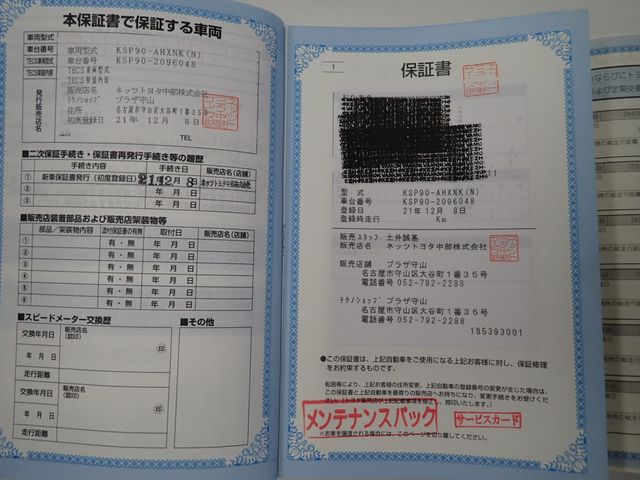 本保証書で保証する車両
車両型式
車台番号
TECS車両型式
TECS架装内容
車両型式 KSP90-AHXNK(N)
車台番号 KSP90-2096048
TECS車両型式
TECS架装内容
発行販売店名
販売店名 ネッツトヨタ中部株式会社
テクノショップ プラザ守山
住所 名古屋市守山区大谷町1番35号
初度登録日 21年 12月 8日
TEL
■二次保証手続き・保証書再発行手続き等の履歴
手続き内容 手続き日 販売店名(店舗)
① 新車保証書発行(初度登録日) 21年12月8日 ネッツトヨタ中部株式会社
② 年 月 日
③ 年 月 日
■販売店装着部品および販売店架装物等
部品/架装物内容 添付保証書の有無 取付日 販売店名(店舗)
① 有・無 年 月 日
② 有・無 年 月 日
③ 有・無 年 月 日
④ 有・無 年 月 日
⑤ 有・無 年 月 日
⑥ 有・無 年 月 日
■スピードメーター交換歴
■その他
交換年月日 販売店名(認印)
年 月 日 印
走行距離
交換年月日 販売店名(認印)
年 月 日 印
走行距離
1
保証書
型式 KSP90-AHXNK(N)
車台番号 KSP90-2096048
登録日 21年 12月 8日
登録時走行 Km
販売スタッフ 土井誠基
販売店名 ネッツトヨタ中部株式会社
販売店舗 プラザ守山
名古屋市守山区大谷町1番35号
電話番号 052-792-2288
テクノショップ プラザ守山
名古屋市守山区大谷町1番35号
電話番号 052-792-2288
185393001
●この保証書は、上記自動車をご使用になる上記お客様に対し、保証修理をお約束するものです。
転居等により、上記お客様の住所変更、上記自動車の登録番号の変更が生じた場合は、
この保証書と上記自動車を最寄りの販売店へお持ちになり、変更手続きをお受けください。(トヨタ販売店が上記記載事項を修正し、捺印いたします。)
メンテナンスパック
サービスカード
※お車を譲渡される場合には、このページを切り離してください。
ならびにト
および定期交